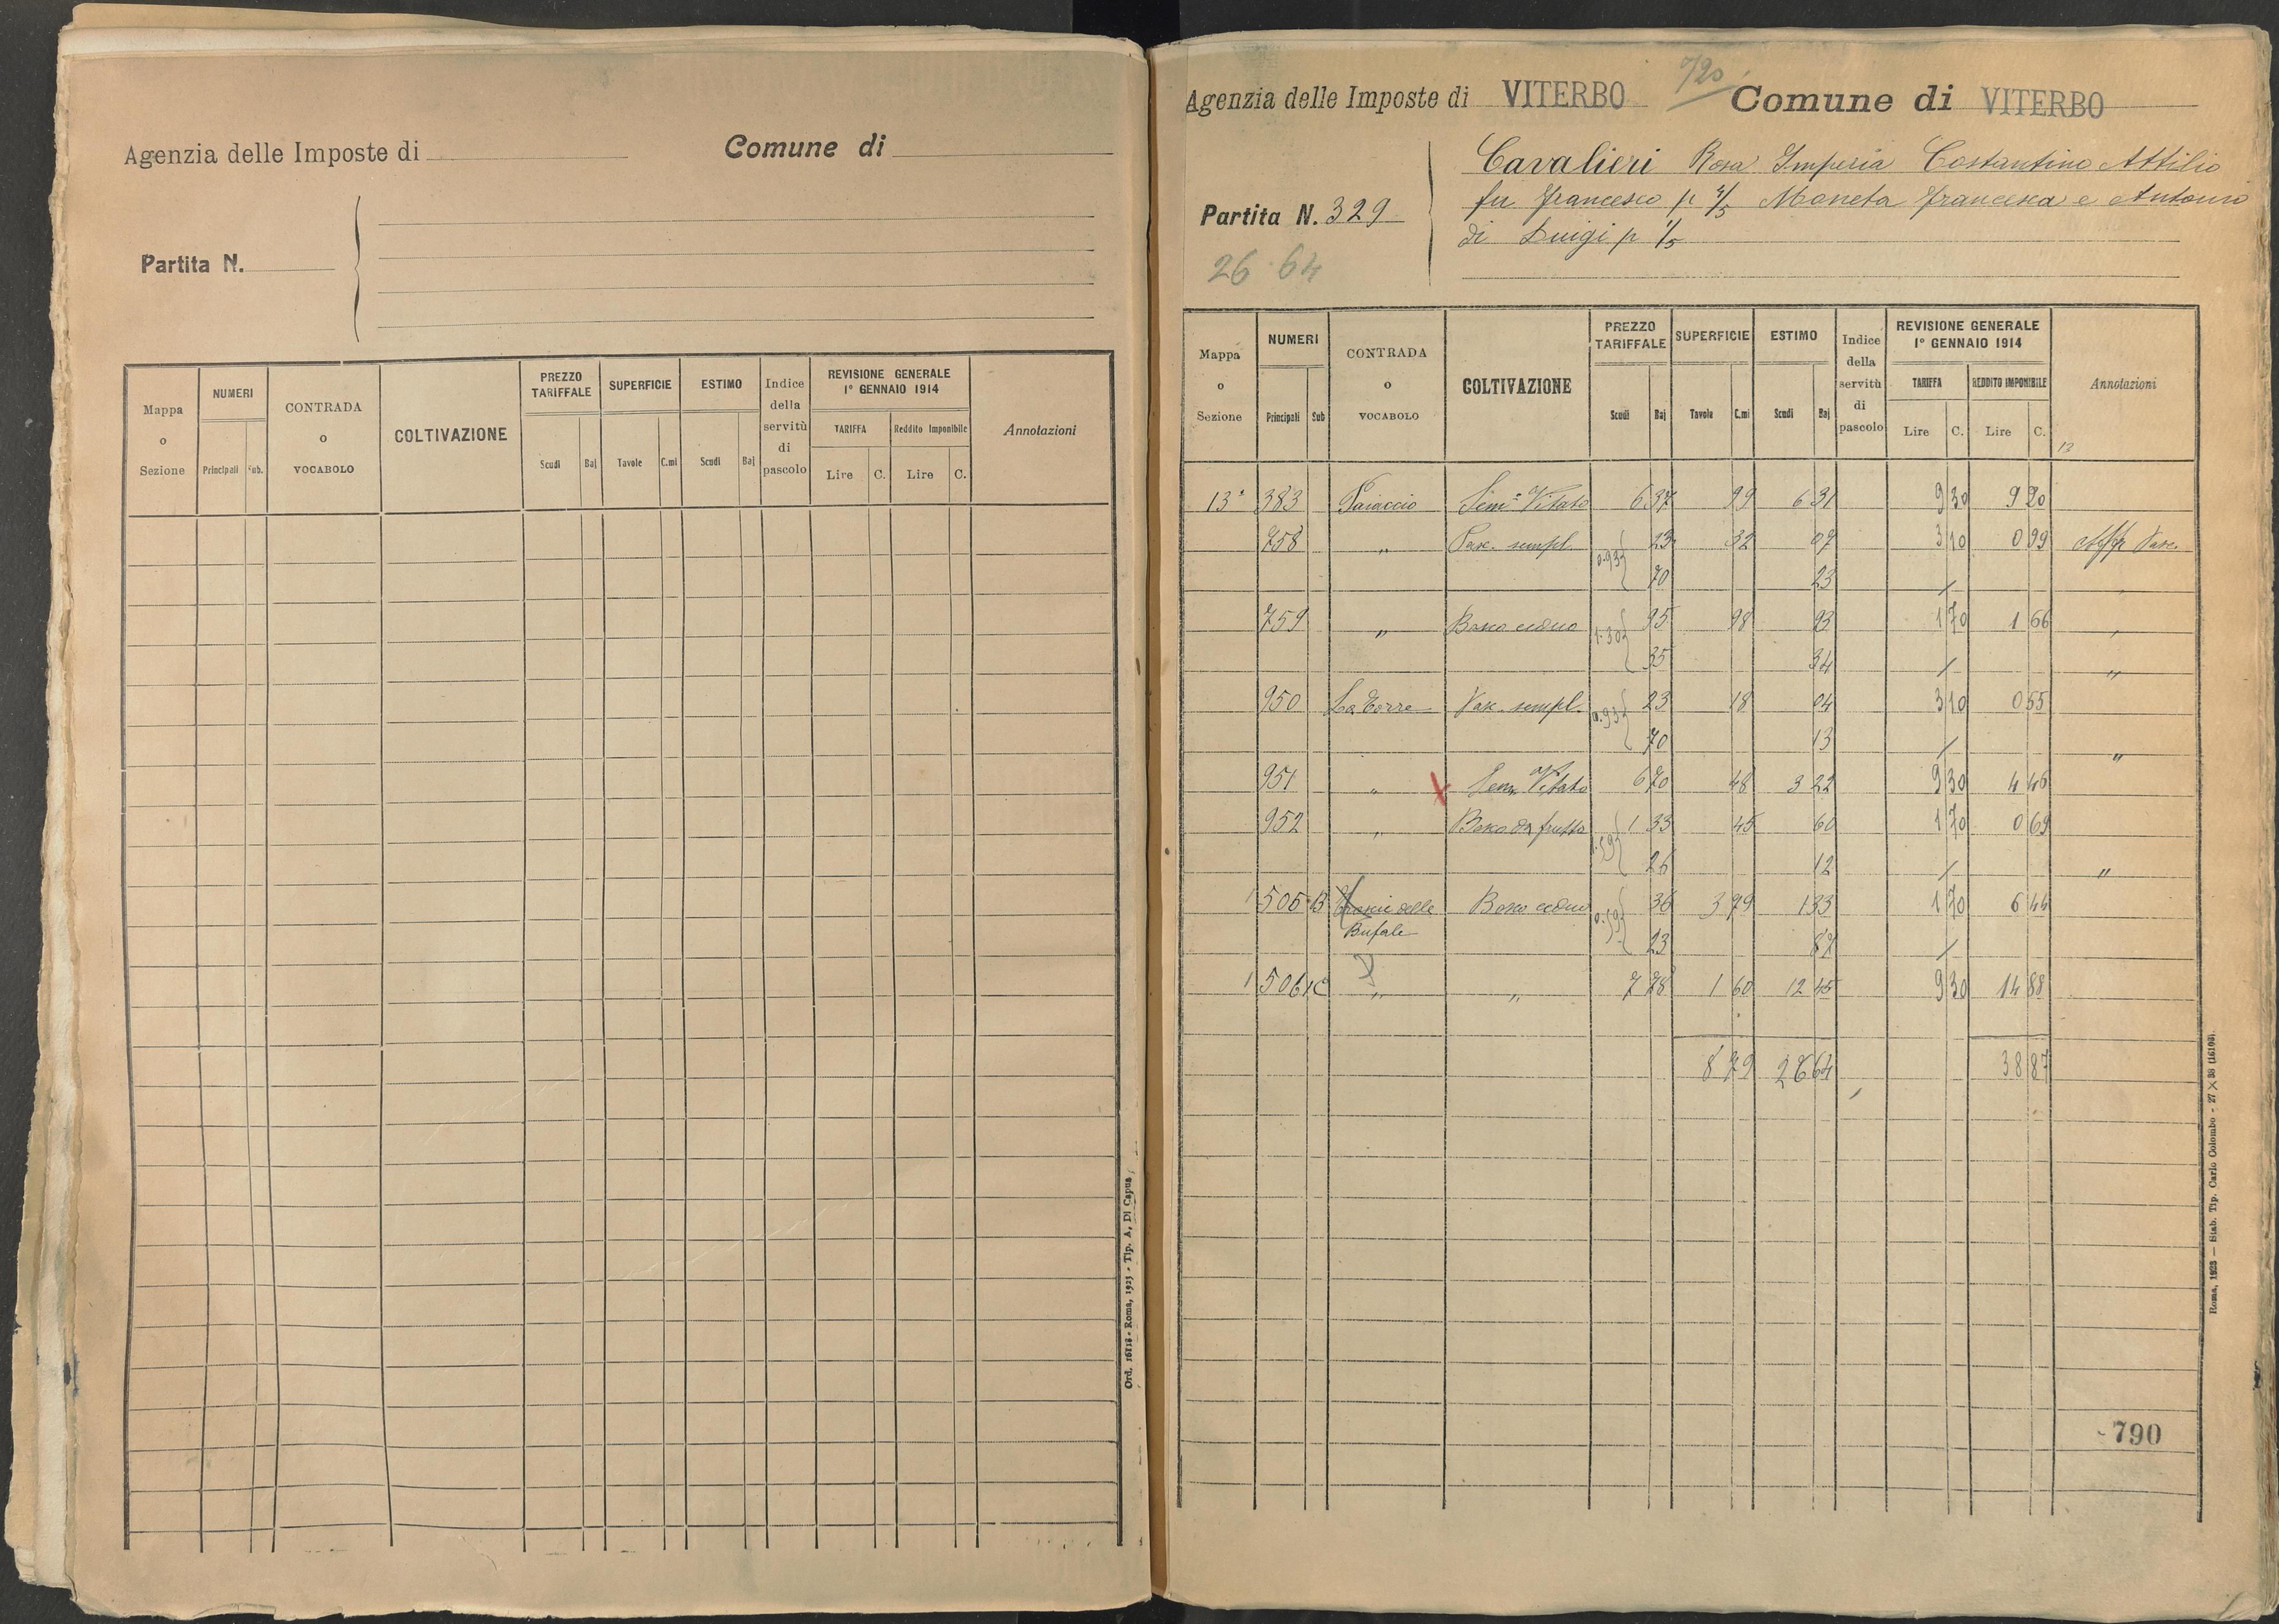 Agenzia delle Imposte di
Comune di
Partita N.
Mappa o Sezione
NUMERI
Principali Sub.
CONTRADA o VOCABOLO
COLTIVAZIONE
PREZZO TARIFFALE
Scudi Baj
SUPERFICIE
Tavole C.mi
ESTIMO
Scudi Baj
Indice della servitù di pascolo
REVISIONE GENERALE 1° GENNAIO 1914
TARIFFA
Lire C.
Reddito Imponibile
Lire C.
Annotazioni
Ord. 16118 - Roma, 1923 - Tip. A. Di Capua
720
Agenzia delle Imposte di VITERBO Comune di VITERBO
Partita N. 329
26 64
Cavalieri Rosa Imperia Costantino Attilio
fu Francesco p 4/5 Moneta Francesca e Antonio
di Luigi p 1/5
Mappa o Sezione
NUMERI
Principali Sub
CONTRADA o VOCABOLO
COLTIVAZIONE
PREZZO TARIFFALE
Scudi Baj
SUPERFICIE
Tavole C.mi
ESTIMO
Scudi Baj
Indice della servitù di pascolo
REVISIONE GENERALE 1° GENNAIO 1914
TARIFFA
Lire C.
REDDITO IMPONIBILE
Lire C.
Annotazioni
13ª 383 Paiaccio Sem. Vitato 6 37 99 6 31 9 30 9 20
758 " Pasc. sempl. 0.93 23 32 07 3 10 0 99 Aff. Pasc.
70 23 /
759 " Bosco ceduo 1.30 95 98 93 1 70 1 66 "
35 34 / "
950 La Torre Pasc. sempl. 0.93 23 18 04 3 10 0 55
70 13 / "
951 " Sem Vitato 6 70 48 3 22 9 30 4 46
952 " Bosco da frutto 1.59 1 33 45 60 1 70 0 69
26 12 / "
1 506 B delle Bufale Bosco ceduo 0.59 36 3 79 1 33 1 70 6 44
23 87 /
1 506 C " " 7 78 1 60 12 45 9 30 14 88
8 79 26 64 38 87
790
Roma, 1923 — Stab. Tip. Carlo Colombo - 27 × 38 (16103).